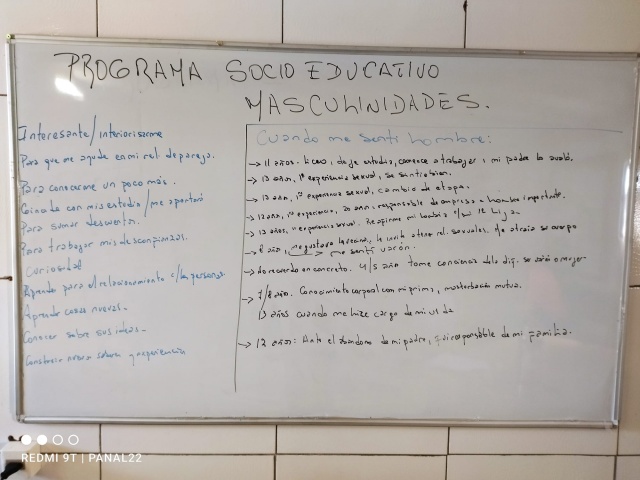 PROGRAMA SOCIO EDUCATIVO
MASCULINIDADES.
Interesante/interiorizarme
Para que me ayude en mi rel. de pareja.
Para conocerme un poco más.
Coincide con mis estudios/me aportará
Para sumar descuentos.
Para trabajar mis desconfianzas.
Curiosidad
Aprendo para el relacionamiento c/las personas.
Aprendo cosas nuevas.
Conocer sobre sus ideas.
Construir nuevos saberes y experiencia
Cuando me sentí hombre:
→ 11 años. liceo, deje estudios, comence a trabajar, mi padre lo avaló.
→ 13 años, 1ª experiencia sexual, se sintió bien.
→ 13 años, 1ª experiencia sexual, cambio de etapa.
→ 12 años, 1ª experiencia, 20 años responsable de empresa = hombre importante.
→ 13 años, 1ª experiencia sexual. mi hombría 12 hija
→ 8 años, me gustaba la vecina, la invité a tener rel. sexuales. Me atraía su cuerpo
me sentí varón.
→ No recuerdo en concreto. 4/5 años tome conciencia de la dif. varón o mujer
→ 7/8 años. Conocimiento corporal con mi primo, masturbación mutua.
13 años cuando me hice cargo de mi vida
→ 12 años: Ante el abandono de mi padre, fui responsable de mi familia.
REDMI 9T | PANAL22